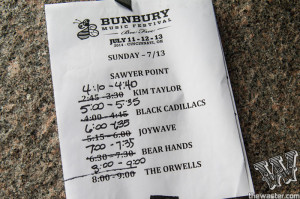 BUNBURY
MUSIC FESTIVAL
Bee Free
JULY 11 - 12 - 13
2014 - CINCINNATI, OH
SUNDAY - 7/13
SAWYER POINT
4:10 - 4:40
2:45 - 3:30 KIM TAYLOR
5:00 - 5:35
4:00 - 4:45 BLACK CADILLACS
6:00 - 6:35
5:15 - 6:00 JOYWAVE
7:00 - 7:35
6:30 - 7:30 BEAR HANDS
8:00 - 9:00
8:00 - 9:00 THE ORWELLS
W
thewaster.com